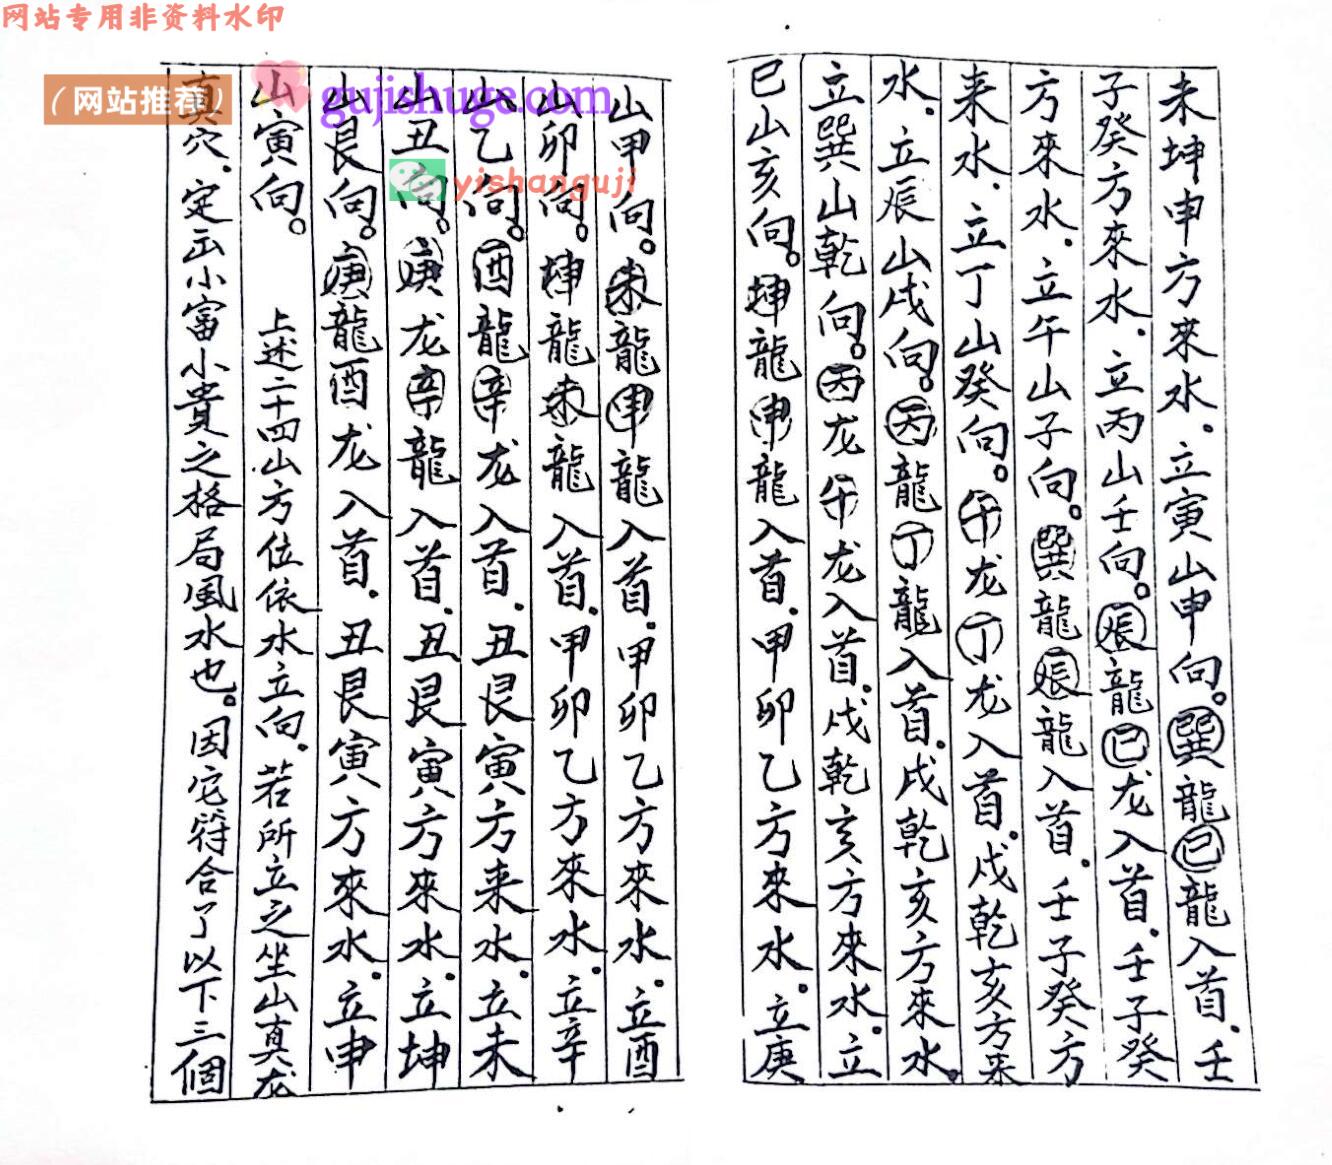 网站专用非资料水印
(网站推荐)
gujishuge.com
yishanguji
未坤申方來水.立寅山申向。巽龍巳龍入首.壬
子癸方來水.立丙山壬向。辰龍巳龙入首.壬子癸
方來水.立午山子向。巽龍辰龍入首.壬子癸方
来水.立丁山癸向。午龙丁龙入首.戌乾亥方来
水.立辰山戌向。丙龍丁龍入首.戌乾亥方來水.
立巽山乾向。丙龙午龙入首.戌乾亥方來水.立
巳山亥向。坤龍申龍入首.甲卯乙方來水.立庚
山甲向。未龍申龍入首.甲卯乙方來水.立酉
山卯向。坤龍未龍入首.甲卯乙方來水.立辛
山乙向。酉龍辛龙入首.丑艮寅方来水.立未
山丑向。庚龙辛龍入首.丑艮寅方來水.立坤
山艮向。庚龍酉龙入首.丑艮寅方來水.立申
山寅向。 上述二十四山方位依水立向.若所立之坐山真龙
真穴.定出小富小貴之格局風水也。因它符合了以下三個